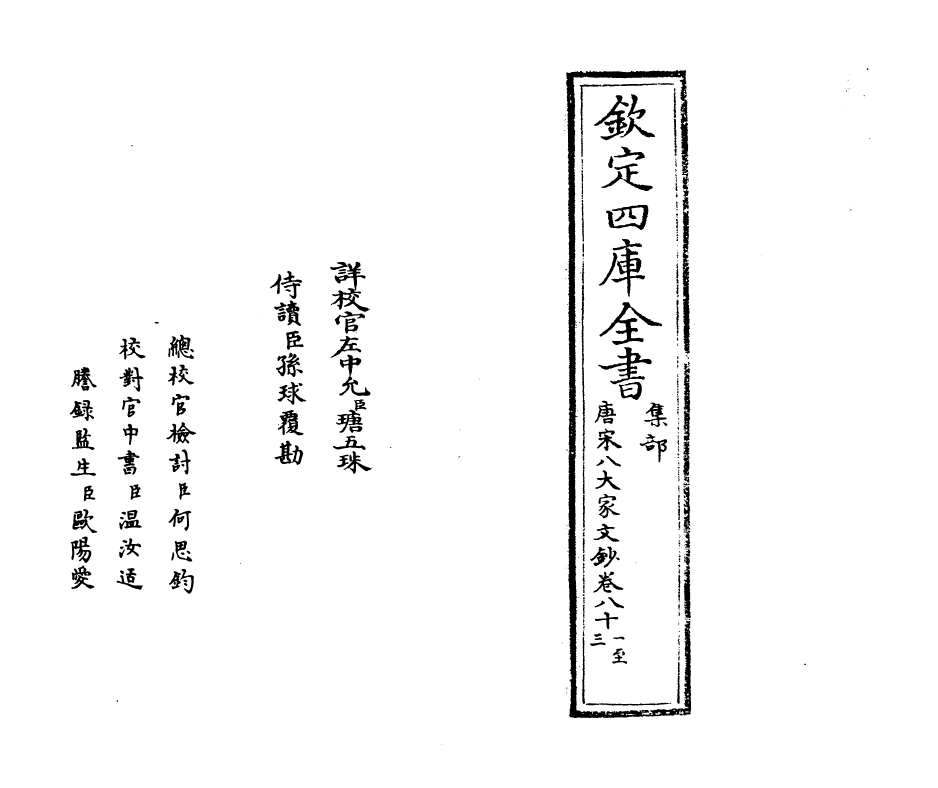 欽定四庫全書
集部
唐宋八大家文鈔卷八十一至三
詳校官左中允臣瑭五珠
侍讀臣孫球覆勘
總校官檢討臣何思鈞
校對官中書臣温汝适
謄録監生臣歐陽愛